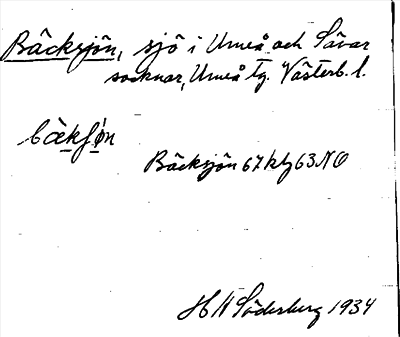 Bäcksjön, sjö i Umeå och Sävar
socknar, Umeå tg. Västerb. l.
Bäcksjön 67 ktg 63 NO
H W Söderberg 1934